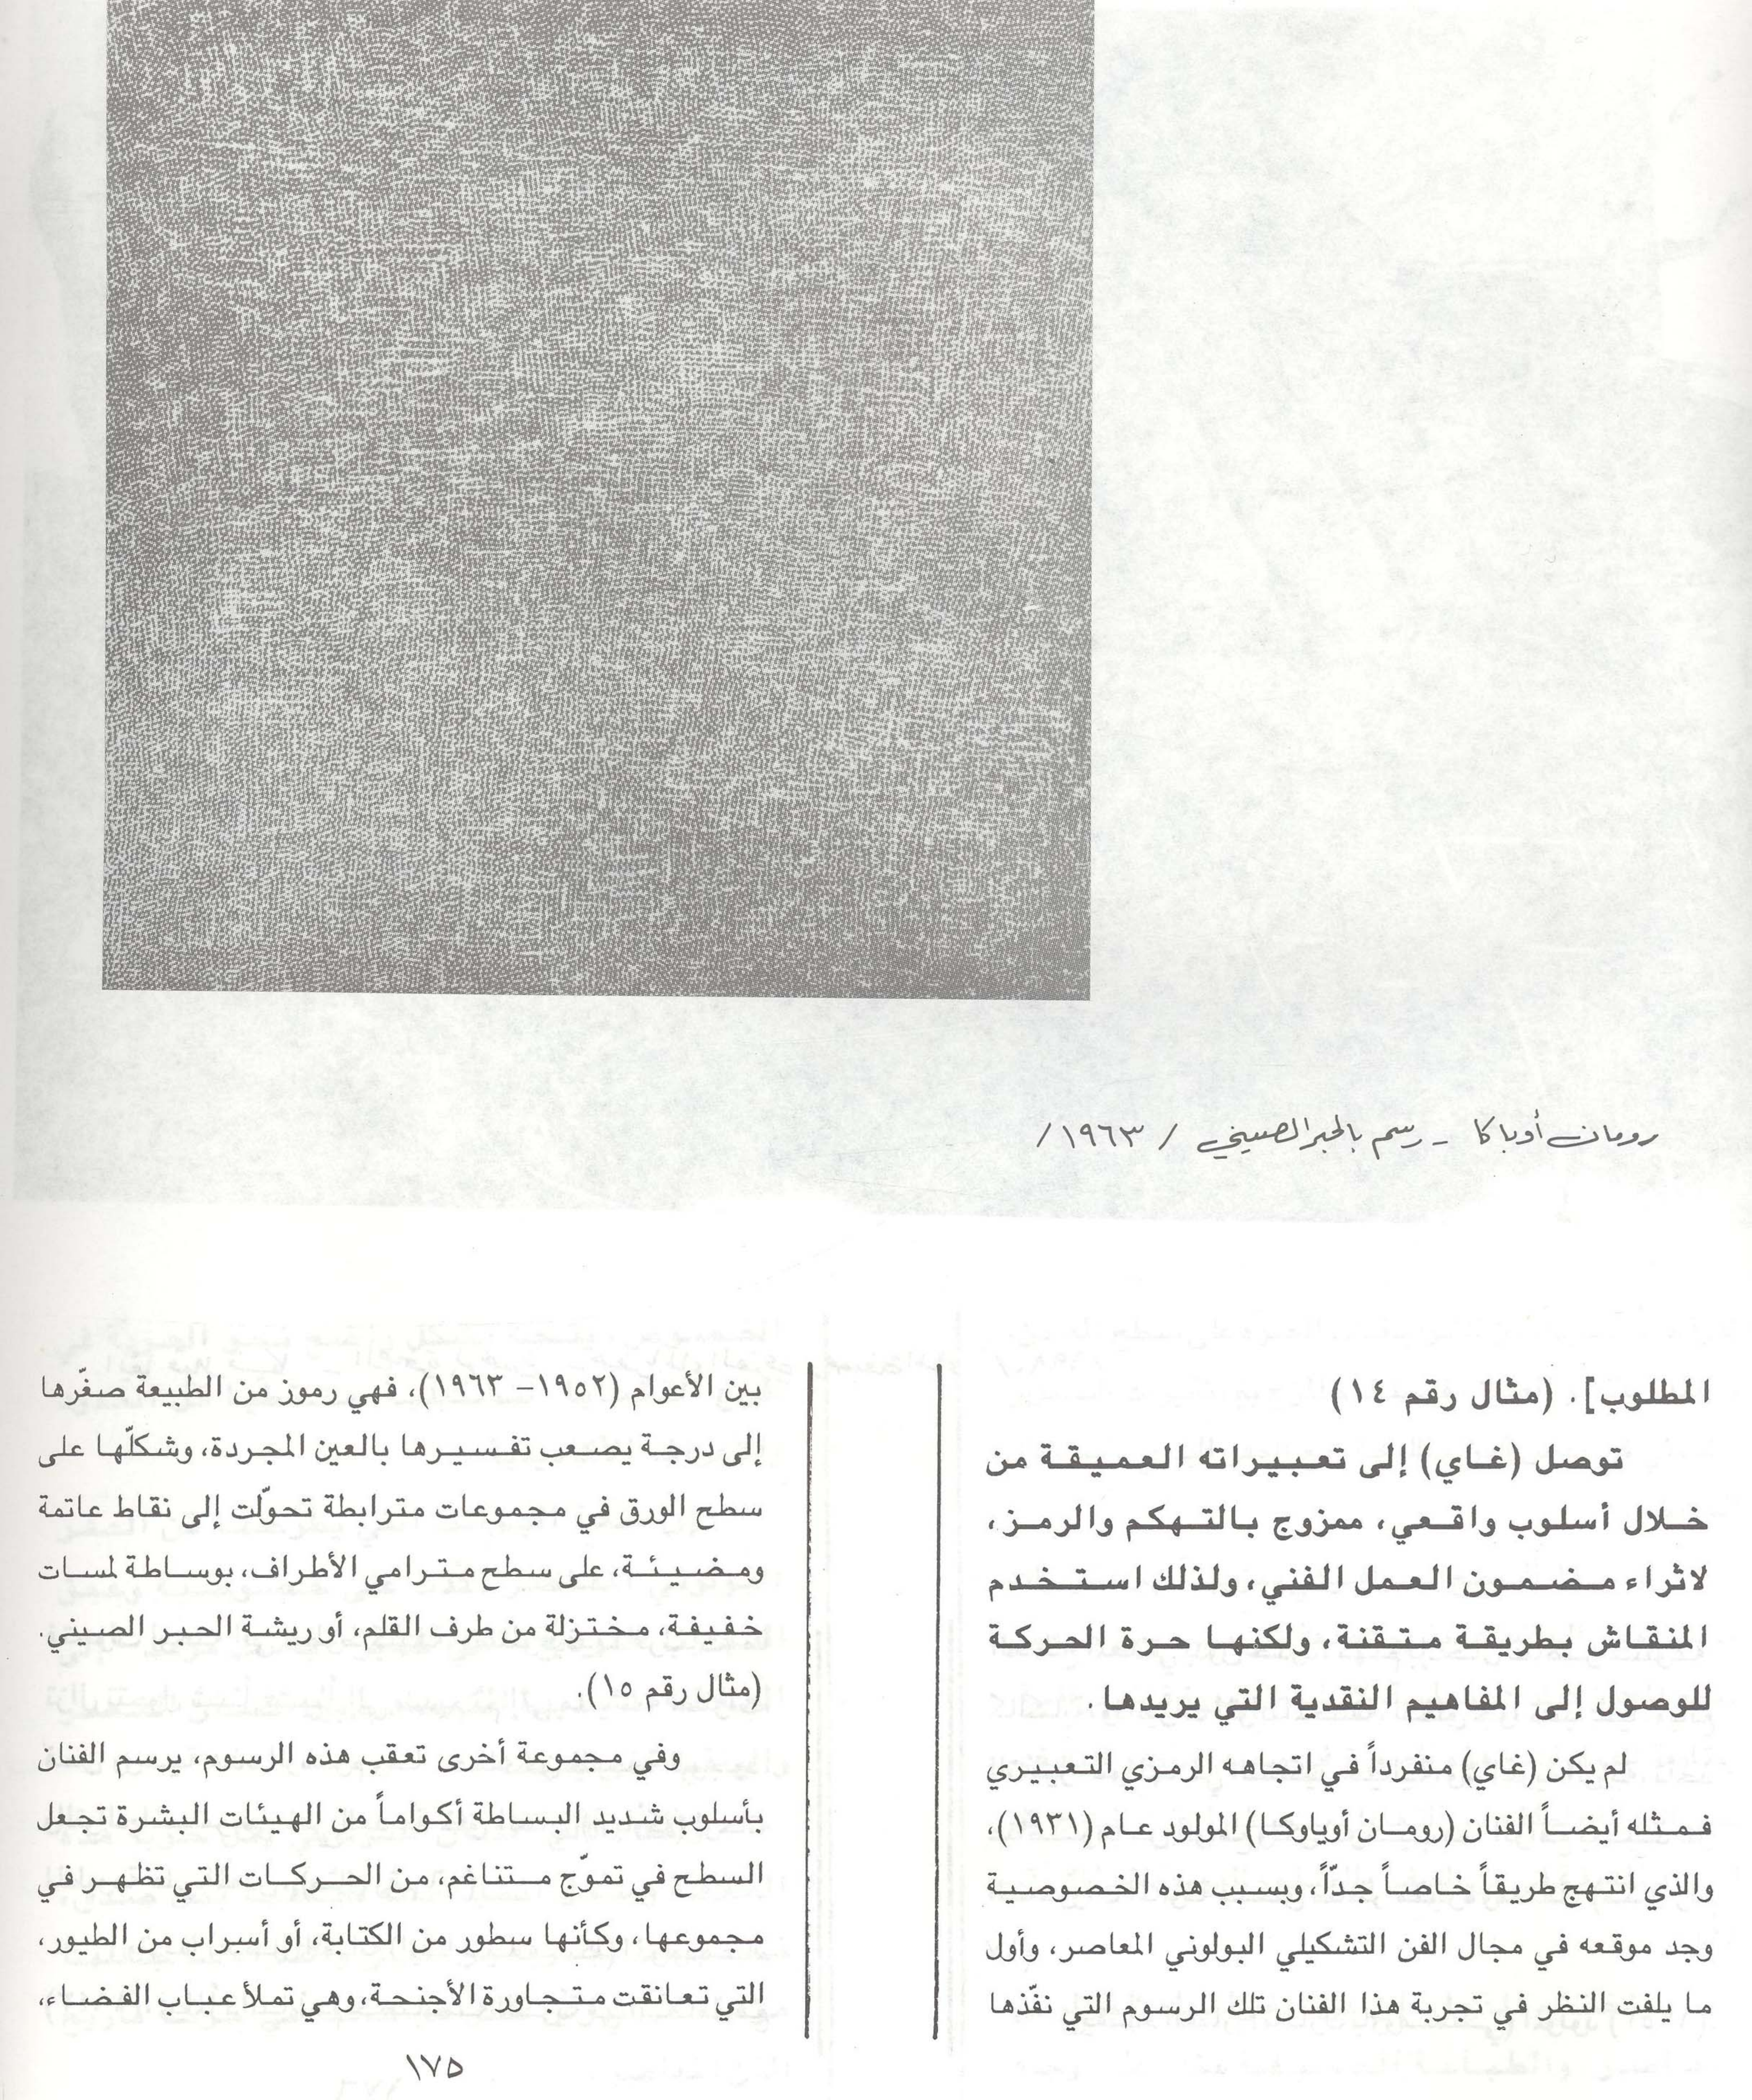 رومان أوباكا - رسم بالحبر الصيني / ١٩٦٣/
المطلوب]. (مثال رقم ١٤)
توصل (غاي) إلى تعبيراته العميقة من
خلال أسلوب واقعي، ممزوج بالتهكم والرمز،
لاثراء مضمون العمل الفني، ولذلك استخدم
المنقاش بطريقة متقنة، ولكنها حرة الحركة
للوصول إلى المفاهيم النقدية التي يريدها.
لم يكن (غاي) منفرداً في اتجاهه الرمزي التعبيري
فمثله أيضاً الفنان (رومان أوياوكا) المولود عام (١٩٣١)،
والذي انتهج طريقاً خاصاً جدّاً، وبسبب هذه الخصوصية
وجد موقعه في مجال الفن التشكيلي البولوني المعاصر، وأول
ما يلفت النظر في تجربة هذا الفنان تلك الرسوم التي نفّذها
بين الأعوام (١٩٥٢- ١٩٦٣)، فهي رموز من الطبيعة صغّرها
إلى درجة يصعب تفسيرها بالعين المجردة، وشكلّها على
سطح الورق في مجموعات مترابطة تحوّلت إلى نقاط عاتمة
ومضيئة، على سطح مترامي الأطراف، بوساطة لمسات
خفيفة، مختزلة من طرف القلم، أو ريشة الحبر الصيني.
(مثال رقم ١٥).
وفي مجموعة أخرى تعقب هذه الرسوم، يرسم الفنان
بأسلوب شديد البساطة أكواماً من الهيئات البشرة تجعل
السطح في تموّج متناغم، من الحركات التي تظهر في
مجموعها، وكأنها سطور من الكتابة، أو أسراب من الطيور،
التي تعانقت متجاورة الأجنحة، وهي تملأ عباب الفضاء،
١٧٥